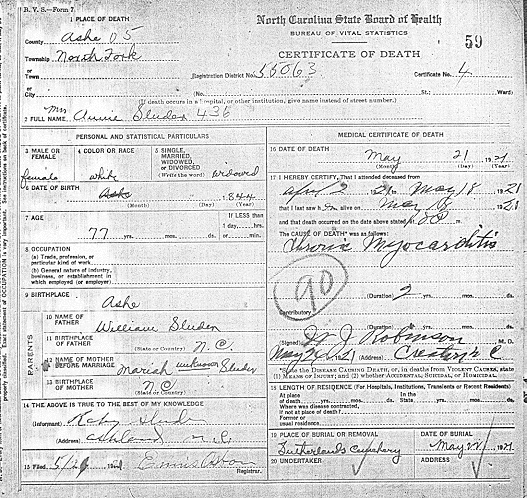 B. V. S.—Form 7.
North Carolina State Board of Health
BUREAU OF VITAL STATISTICS
CERTIFICATE OF DEATH
59
1 PLACE OF DEATH
County Ashe 05
Township North Fork
or
Town
or
City
Registration District No. 55063 Certificate No. 4
(No. St.; Ward)
(If death occurs in a hospital, or other institution, give name instead of street number.)
2 FULL NAME Mrs Annie Sluder 436
PERSONAL AND STATISTICAL PARTICULARS
3 MALE OR FEMALE female
4 COLOR OR RACE white
5 SINGLE, MARRIED, WIDOWED or DIVORCED (Write the word) widowed
6 DATE OF BIRTH Ashe 1844
(Month) (Day) (Year)
7 AGE 77 yrs. mos. ds.
If LESS than 1 day, hrs. or min.
8 OCCUPATION
(a) Trade, profession, or particular kind of work
(b) General nature of industry, business, or establishment in which employed (or employer)
9 BIRTHPLACE Ashe
PARENTS
10 NAME OF FATHER William Sluder
11 BIRTHPLACE OF FATHER (State or Country) N. C.
12 NAME OF MOTHER BEFORE MARRIAGE Mariah unknown Sluder
13 BIRTHPLACE OF MOTHER (State or Country) N C
14 THE ABOVE IS TRUE TO THE BEST OF MY KNOWLEDGE
(Informant)
(Address) Ashland N. C.
15 Filed 5/ 1921
Registrar.
MEDICAL CERTIFICATE OF DEATH
16 DATE OF DEATH May 21 1921
(Month) (Day) (Year)
17 I HEREBY CERTIFY, That I attended deceased from
May 18 1921
that I last saw h alive on May 18 1921
and that death occurred on the date above stated at m.
The CAUSE OF DEATH* was as follows:
Chronic Myocarditis
90
(Duration) 2 yrs. mos. ds.
Contributory
(Duration) yrs. mos. ds.
(Signed) J Robinson M. D.
May 1921 (Address) Creston N C
*State the DISEASE CAUSING DEATH, or, in deaths from VIOLENT CAUSES, state (1) MEANS OF INJURY; and (2) whether ACCIDENTAL, SUICIDAL, or HOMICIDAL.
18 LENGTH OF RESIDENCE (For Hospitals, Institutions, Transients or Recent Residents)
At place of death yrs. mos. ds. In the State yrs. mos. ds.
Where was disease contracted, if not at place of death?
Former or usual residence
19 PLACE OF BURIAL OR REMOVAL Sutherlands
DATE OF BURIAL May 22 1921
20 UNDERTAKER
ADDRESS